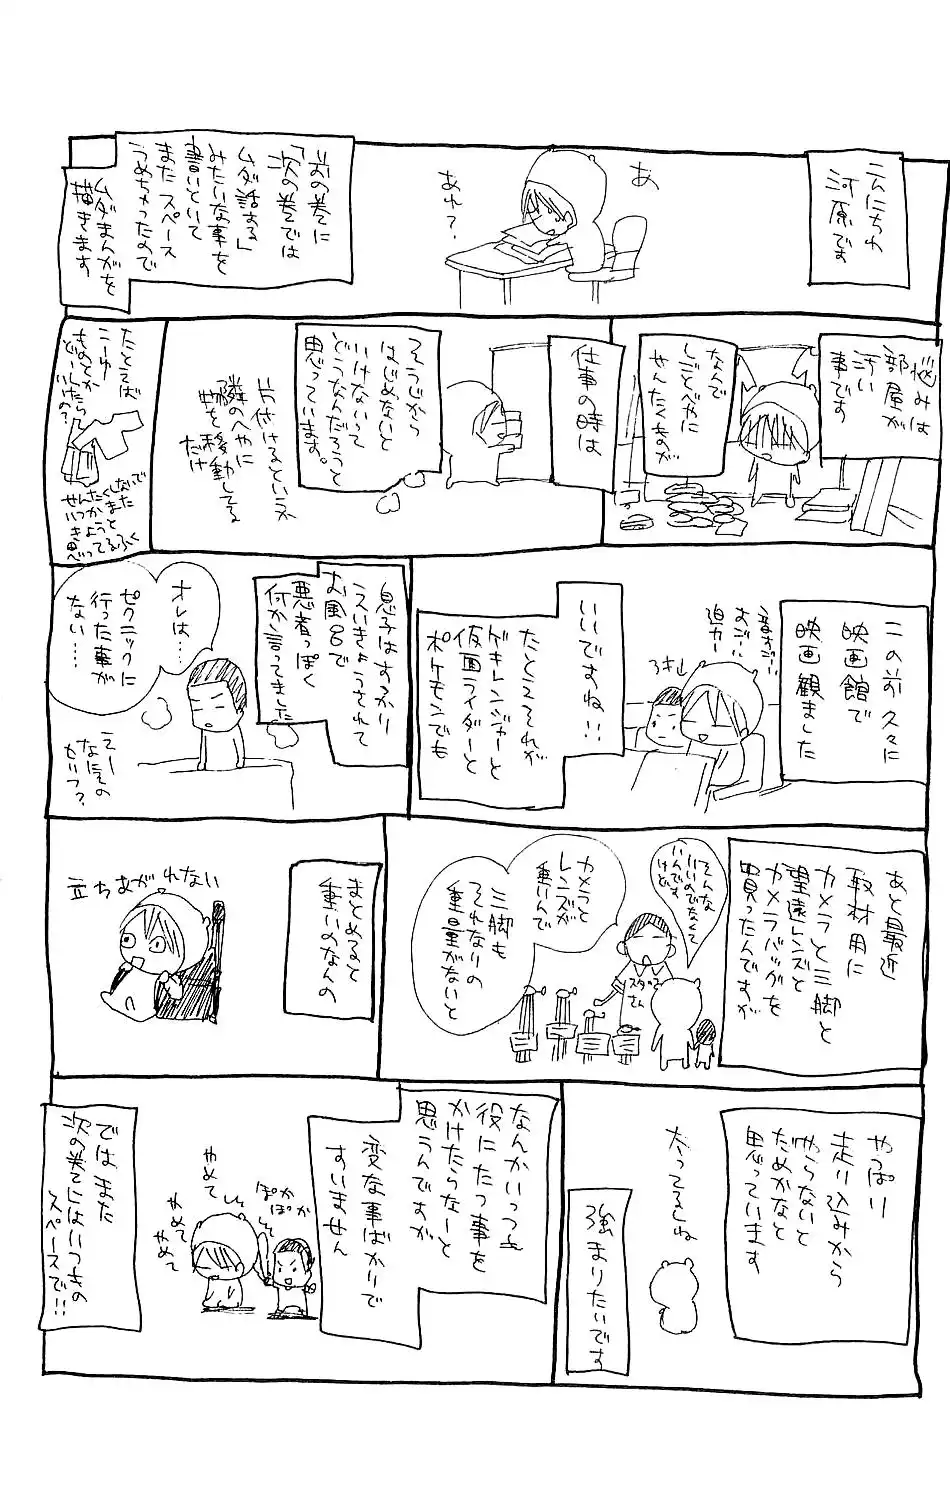 こんにちわ
河原です
あ
あれ？
前の巻に
「次の巻では
ムダ話する」
みたいな事を
書いといて
またスペース
うめちゃったので
ムダまんがを
描きます
悩みは
部屋が
汚い
事です
なんで
しごとべやに
せんたくものが
仕事の時は
そうじから
はじめないと
いけないって
どうなんだろうと
思っています。
片付けるといっても
隣のへやに
物を移動してる
だけ
たとえば
こーゆー
ものとか
どーしたら
いいの？
せんたくしないで
いつかまた
きようと
思ってるふく
この前久々に
映画館で
映画観ました
音すごー
おごー
迫力ー
うきし
いいですね!!
たとえそれが
ゲキレンジャーと
仮面ライダーと
ポケモンでも
息子はすっかり
えいきょうされて
お風呂で
悪者っぽく
何か言ってました
オレは…
ピクニックに
行った事が
ない…
えー
なにその
セリフ？
あと最近
取材用に
カメラと三脚と
望遠レンズと
カメラバッグを
買ったんですが
そんな
いいのでなくて
いんです
けど
カメラと
レンズが
重いんで
三脚も
それなりの
重量がないと
スタッフ
さん
まとめると
重いのなんの
立ちあがれない
やっぱり
走り込みから
やらないと
だめかなと
思っています
太ってるしね
強まりたいです
なんかいっつも
役にたつ事を
かけたらなーと
思うんですが
変な事ばかりで
すいません
ぽか
ぽか
やめて
やめて
やめて
ではまた
次の巻にはいつもの
スペースで!!